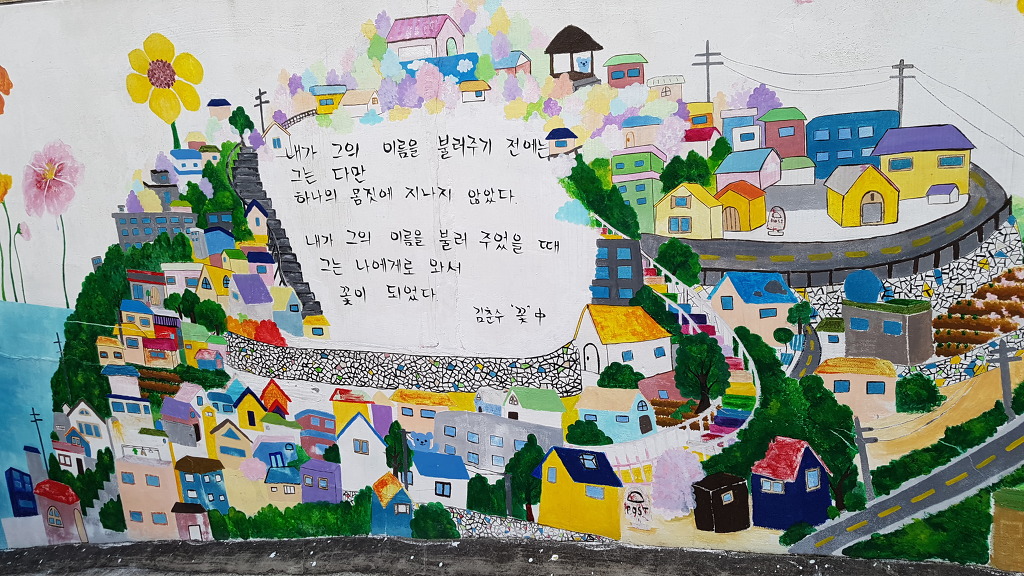 내가 그의 이름을 불러주기 전에는
그는 다만
하나의 몸짓에 지나지 않았다.
내가 그의 이름을 불러 주었을 때
그는 나에게로 와서
꽃이 되었다
김춘수 '꽃' 中
Post
PoST